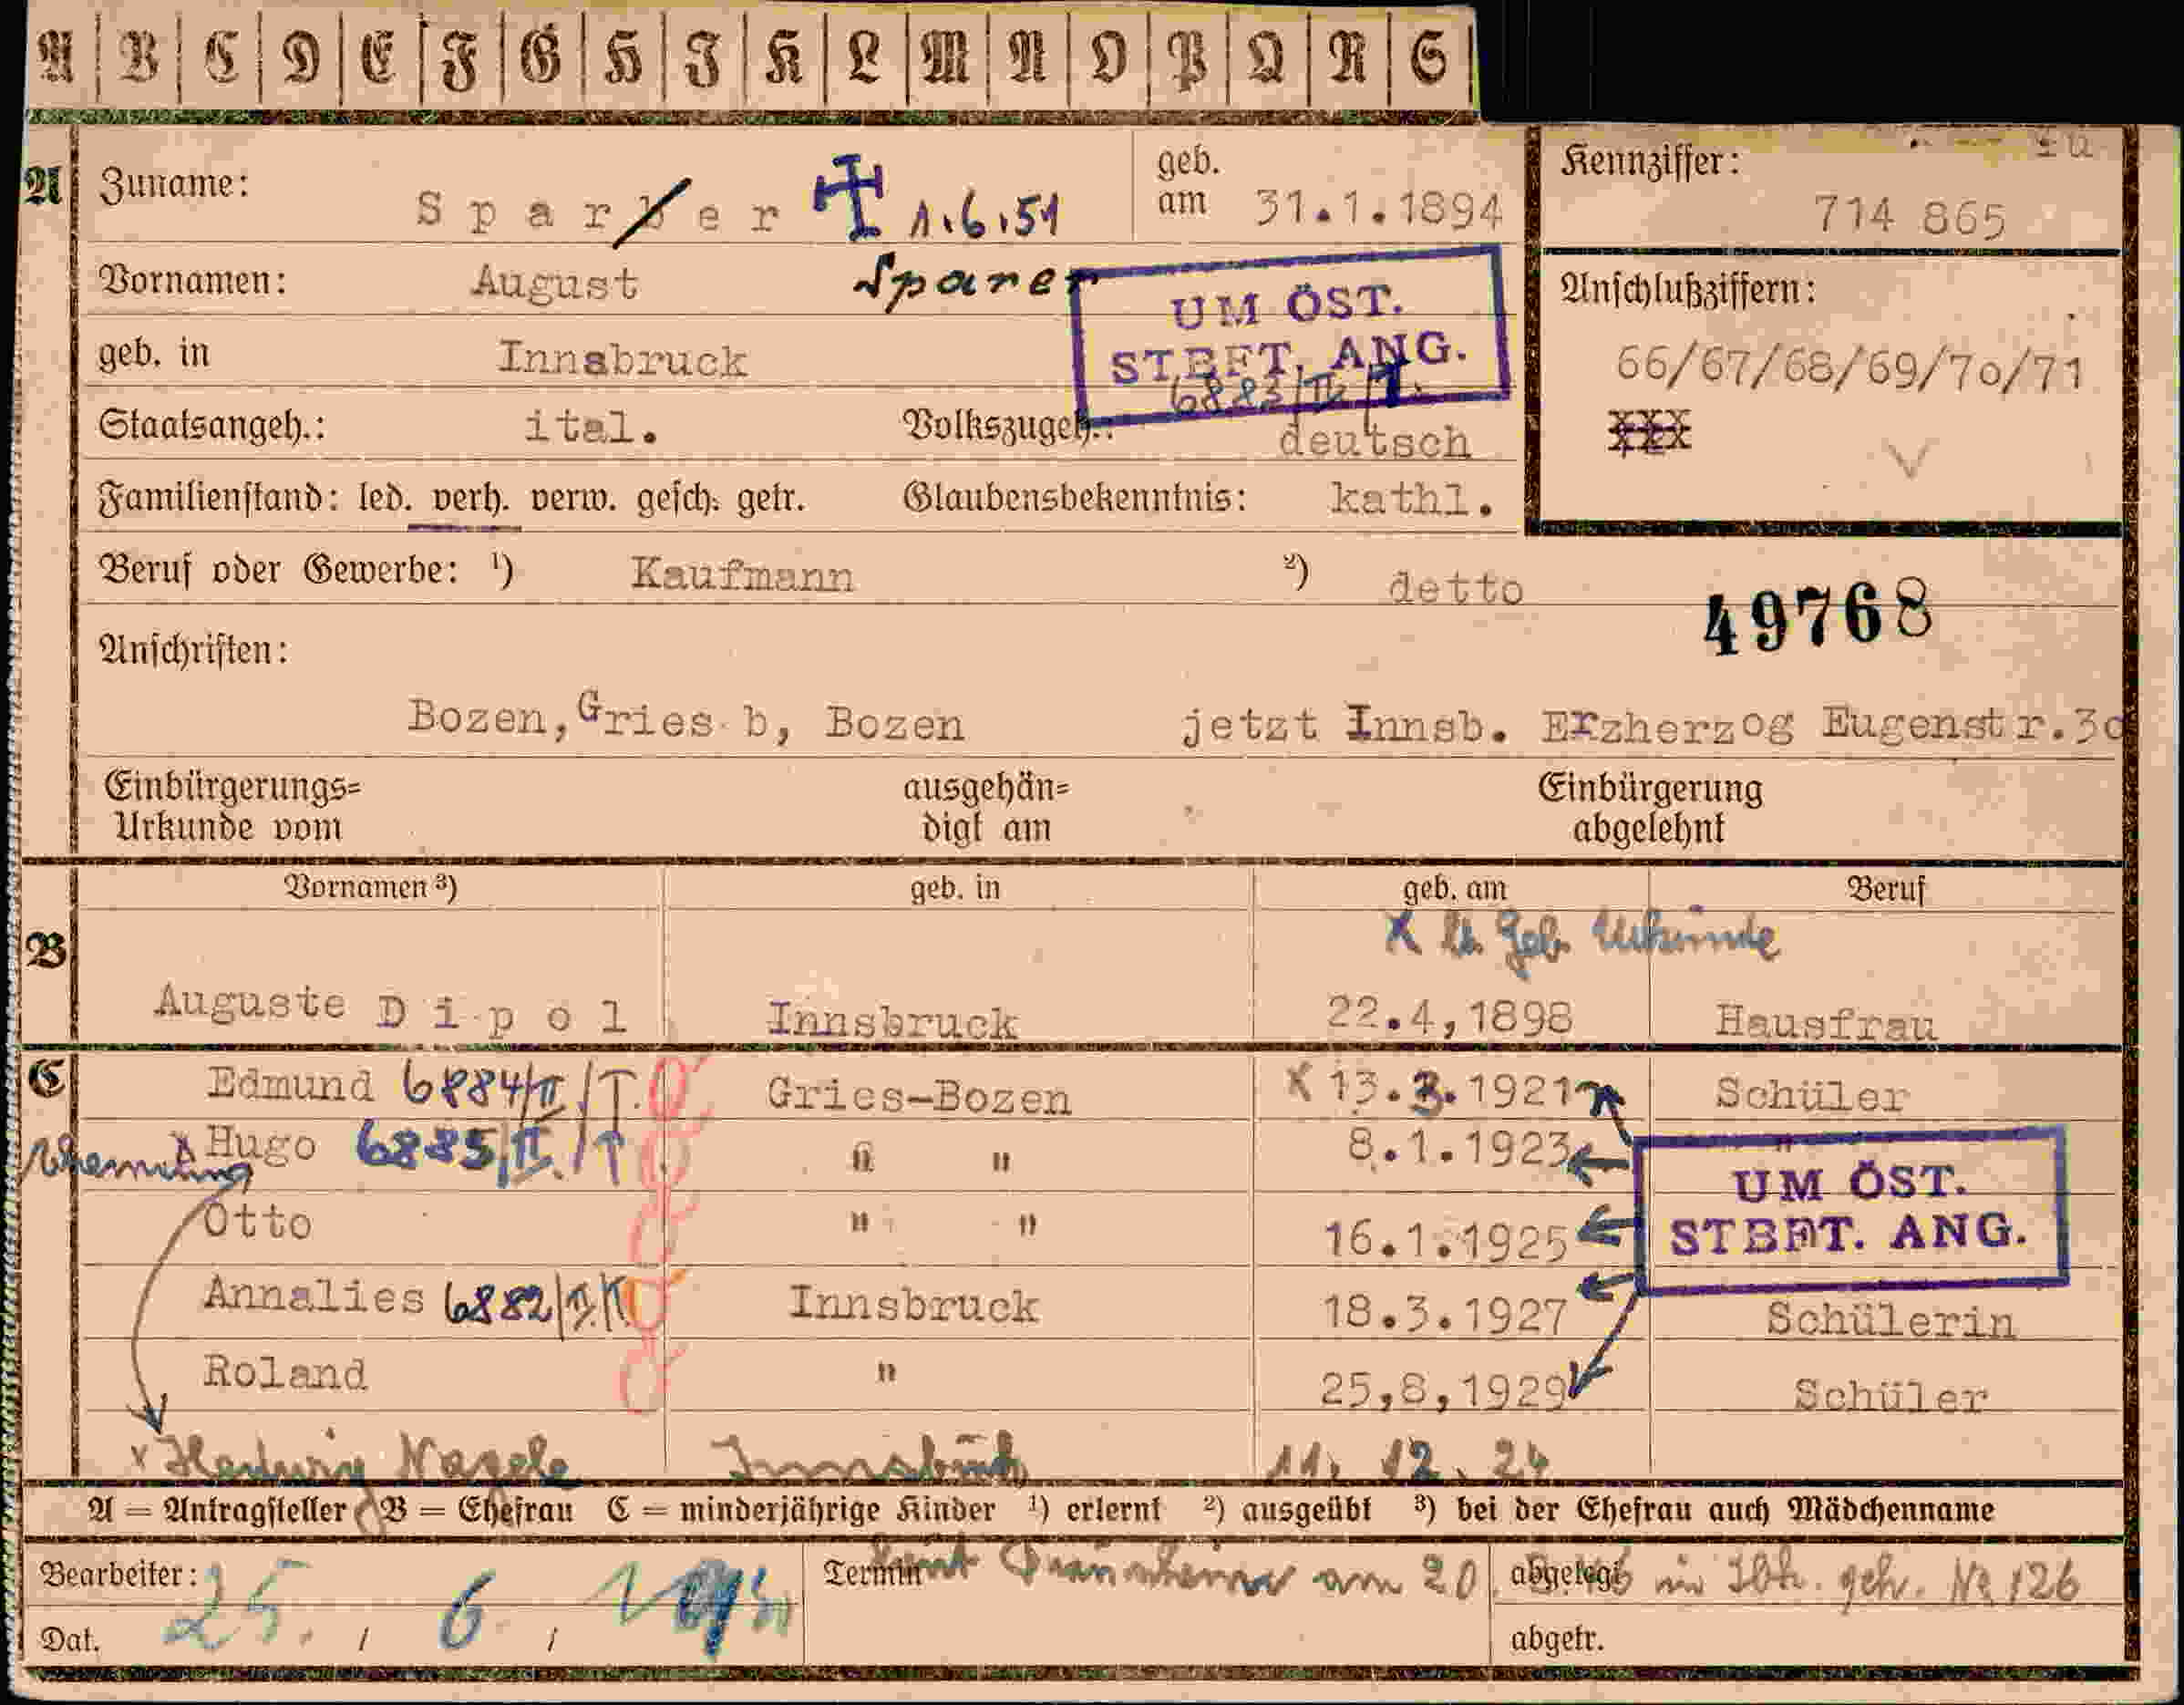 A B C D E F G H I K L M N O P Q R S
A Zuname: Sparber 1.6.51 geb. am 31.1.1894 Kennziffer: 714 865
Vornamen: August Sparer UM ÖST. Anschlußziffern:
geb. in Innsbruck STBFT. ANG. 66/67/68/69/70/71
6883/II/T.
Staatsangeh.: ital. Volkszugeh.: deutsch xxx
Familienstand: led. verh. verw. gesch. getr. Glaubensbekenntnis: kathl.
Beruf oder Gewerbe: ¹) Kaufmann ²) detto
49768
Anschriften:
Bozen, Gries b, Bozen jetzt Innsb. Erzherzog Eugenstr.30
Einbürgerungs= ausgehän= Einbürgerung
Urkunde vom digt am abgelehnt
Vornamen ³) geb. in geb. am Beruf
B x lt. Geb. Urkunde
Auguste Dipol Innsbruck 22.4,1898 Hausfrau
C Edmund 6884/II./T. Gries-Bozen x 13.3.1921 Schüler
x Hugo 6885/II./T " " 8.1.1923 "
UM ÖST.
Otto " " 16.1.1925 STBFT. ANG.
Annalies 6882/II. Innsbruck 18.3.1927 Schülerin
Roland " 25,8,1929 Schüler
x Hedwig Nagele Innsbruck 11. 12. 24
A = Antragsteller B = Ehefrau C = minderjährige Kinder ¹) erlernt ²) ausgeübt ³) bei der Ehefrau auch Mädchenname
Bearbeiter: Termin am 20. abgelegt in Ibk. geh. No 126
Dat. 25. / 6. / abgetr.